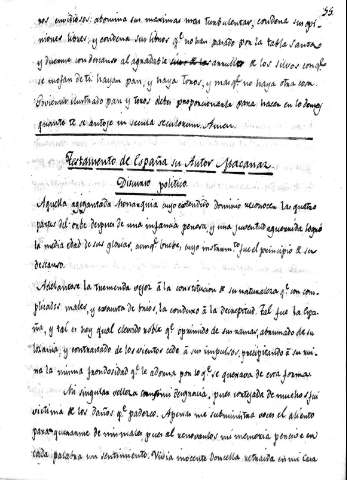 55.
nos envegiosos: abomina sus maximas mas turbulentas, condena sus opi-
niones libres, y condena sus libros qe. no han pasado por la tabla Santa
y duerme con descanso al agradable arrullo de los silvos con qe.
se mofan de ti. haya pan, y haya toros, y mas qe. no haya otra cosa.
Govierno ilustrado pan y toros debes proporcionarla para hacer en lo demas
quanto te se antoje in secula seculorum. Amen.
Testamento de España su Autor Macanaz.
Discurso politico
Aquella agigantada Monarquia cuyo estendido dominio reconocen las quatro
partes del orbe despues de una infancia penosa, y una juventud aguerrida logró
la media edad de sus glorias, aunqe. breve, cuyo instante fue el principio de su
descanso.
Adelantose la tremenda vejez á la constitucion de su naturaleza qe. son com-
plicados males, y exausta de brios, la conduxo á la decrepitud. Tal fue la Espa-
ña, y tal es hoy qual elevado roble qe. oprimido de sus ramas, abrumado de su
lozanía, y contrastado de los vientos cede á sus impulsos, precipitando á su rui-
na la misma frondosidad qe. le adorna por lo qe. se quexava de esta forma
Mi singular velleza compuso mi desgracia, pues cortejada de muchos fui
victima de los daños qe. padezco. Apenas me subministra voces el aliento
para quexarme de mis males, pues al renovarlos mi memoria pierde en
cada palabra un sentimiento. Vivia inocente Doncella retirada en mi Casa